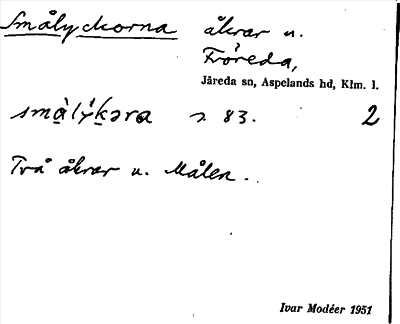 Smålyckorna åkrar u.
Fröreda,
Järeda sn, Aspelands hd, Klm. l.
smàlýkəra s. 83. 2
Två åkrar u. Målen.
Ivar Modéer 1951